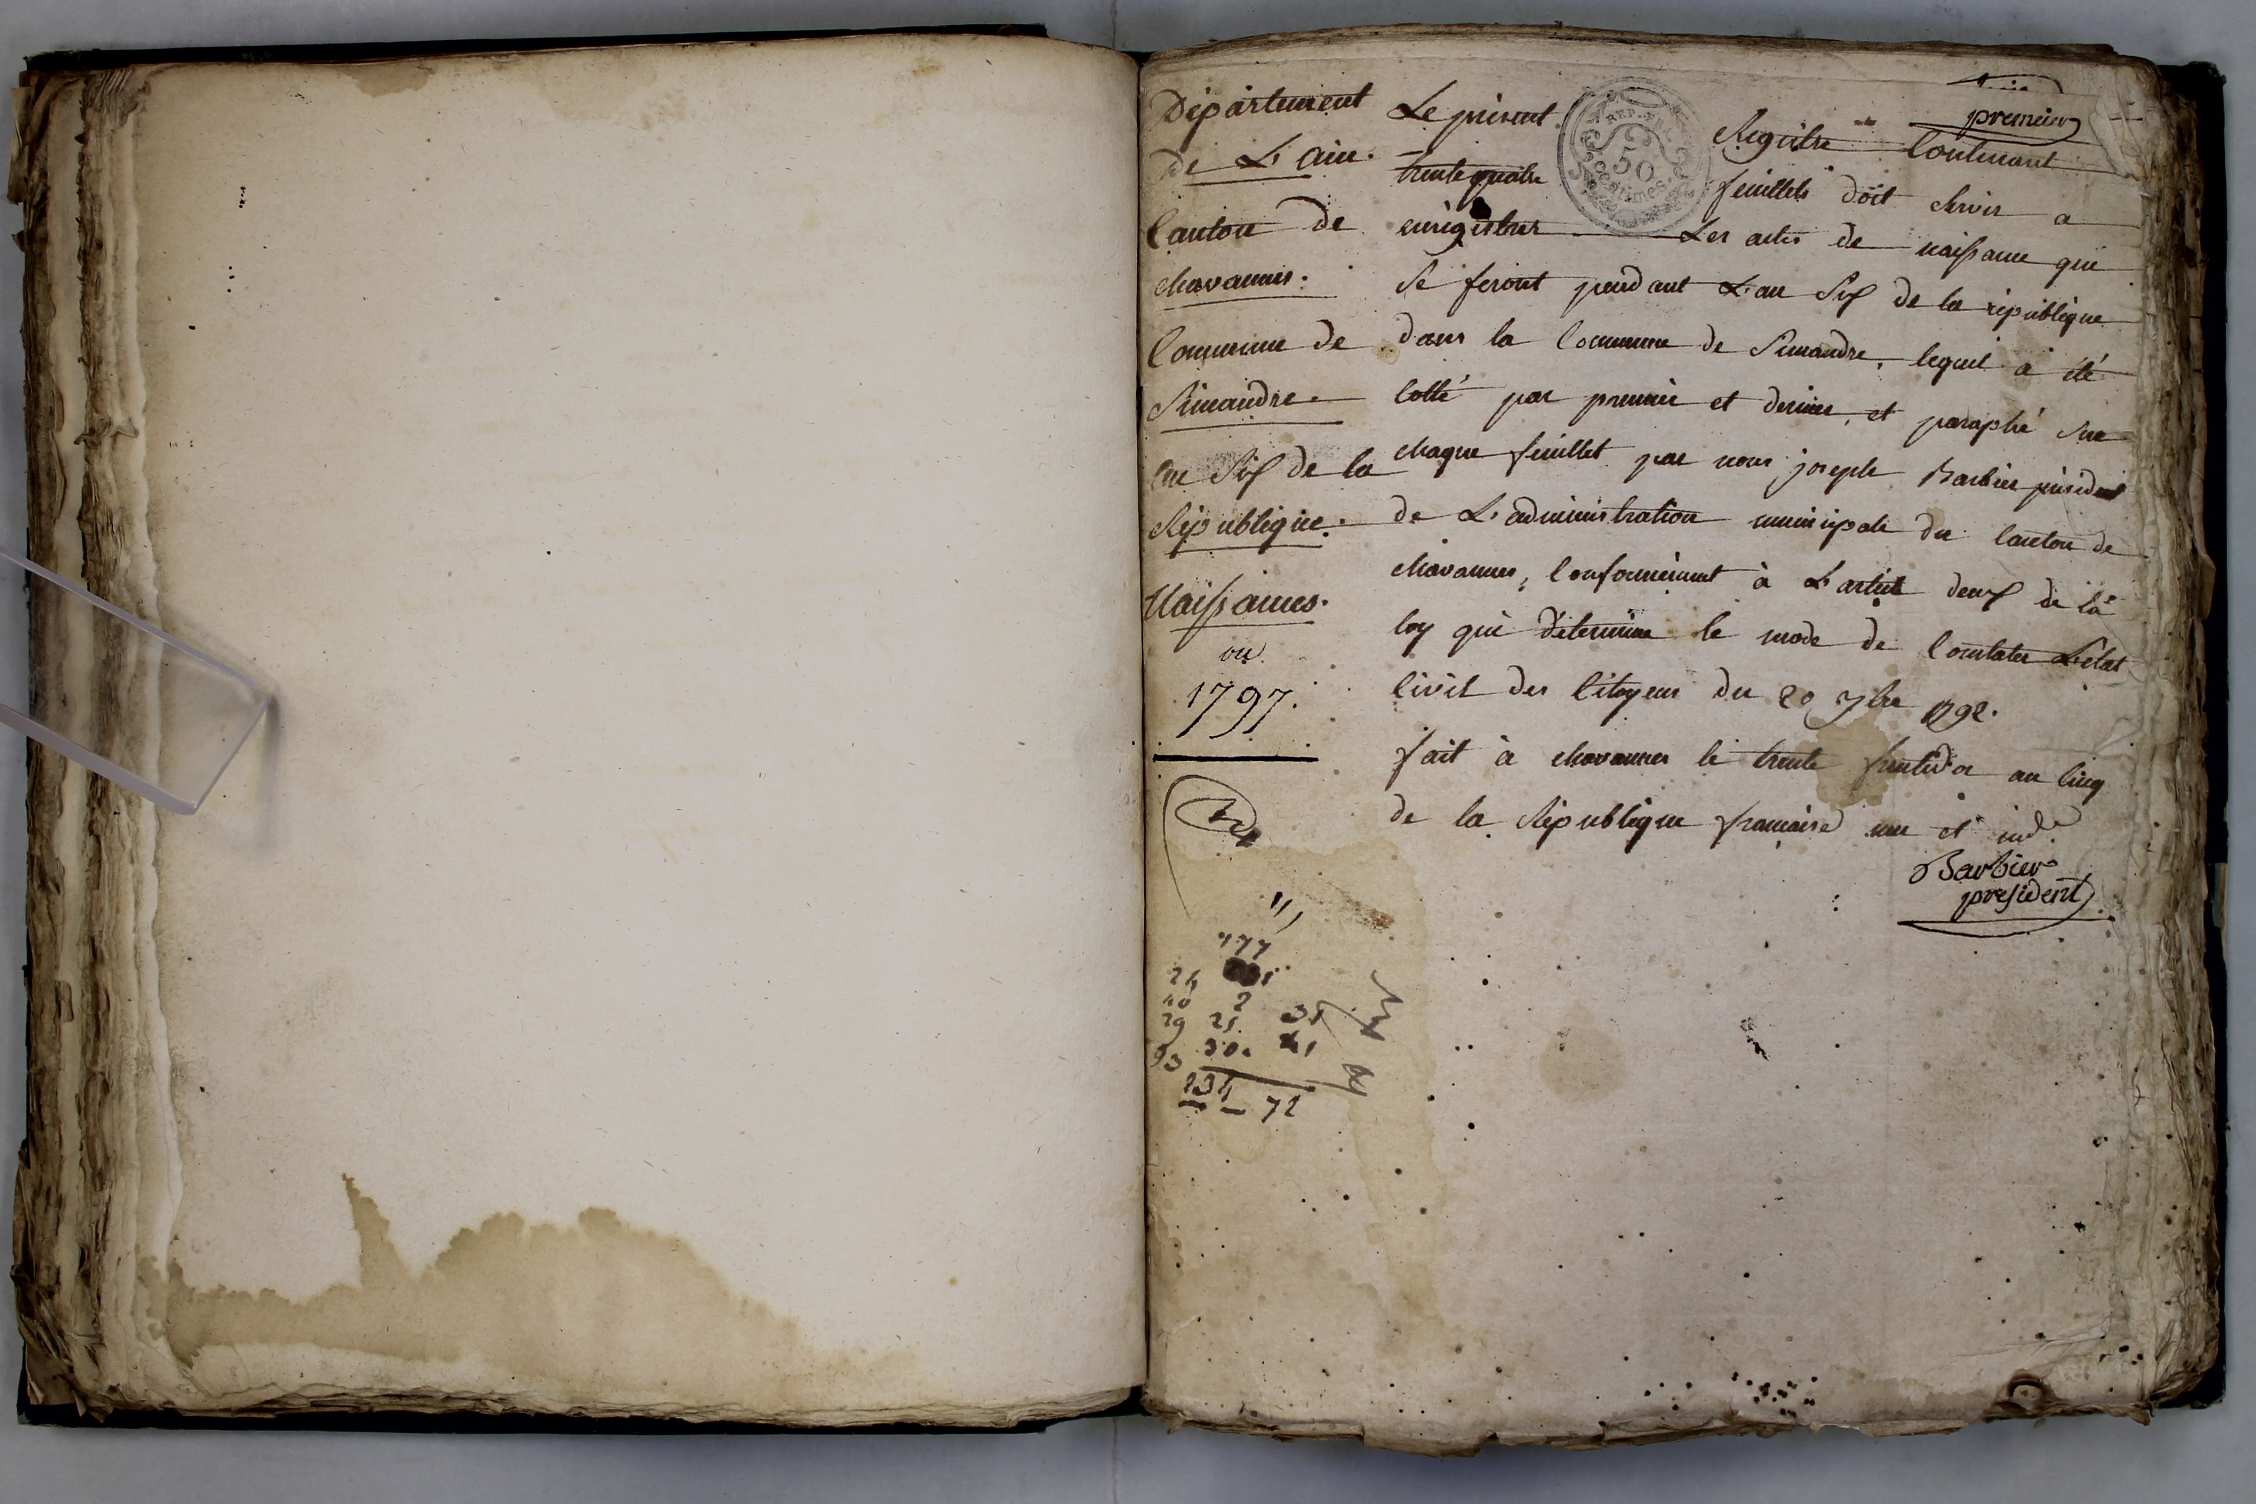 premier
Département
de L'ain.
Canton de
chavannes.
Commune de
Simandre.
an Six de la
République.
Naissances.
ou
1797.
Le présent Registre contenant
trente quatre feuillets doit servir a
enrégistrer Les actes de naissance qui
se feront pendant L'an Six de la république
dans la Commune de Simandre, lequel a été
Cotté par premier et dernier, et paraphé sur
chaque feuillet par nous joseph Barbier président
de L'administration municipale du Canton de
chavannes, Conformément à L'article deux de la
loy qui détermine le mode de Constater L'état
Civil des Citoyens du 20 7bre 1792.
fait à chavannes le trente fructidor an Cinq
de la République française une et indle
Barbier
president
REP. FRA.
50
Centimes.
777
24
40 2
29 25 31
93 30. 41
234
72